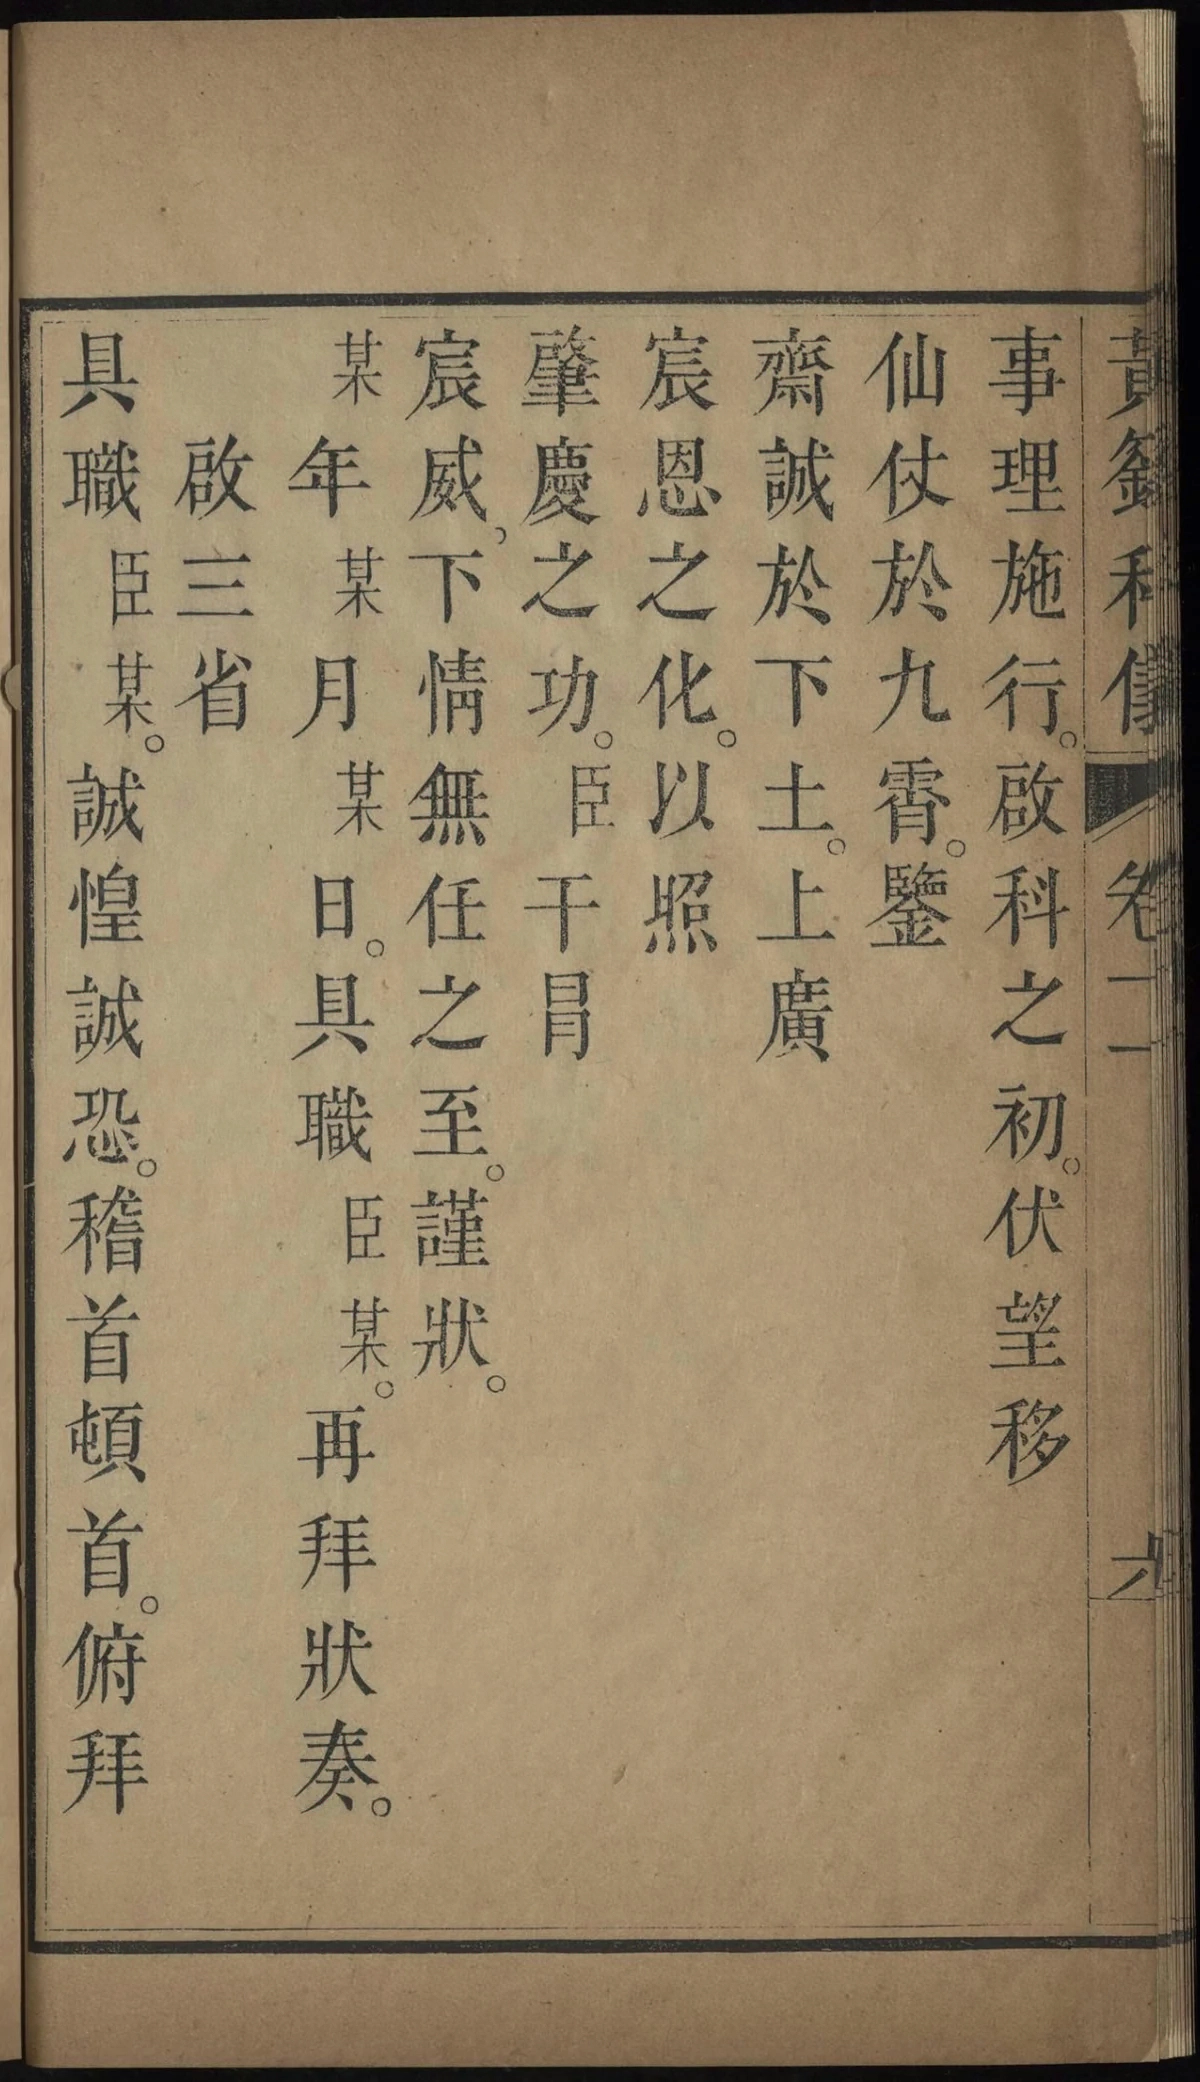 黃籙科儀 卷二 九
事理施行。啟科之初。伏望移
仙仗於九霄。鑒
齋誠於下土。上廣
宸恩之化。以照
肇慶之功。臣干冒
宸威、下情無任之至。謹狀。
某年某月某日。具職臣某。再拜狀奏。
啟三省
具職臣某。誠惶誠恐。稽首頓首。俯拜